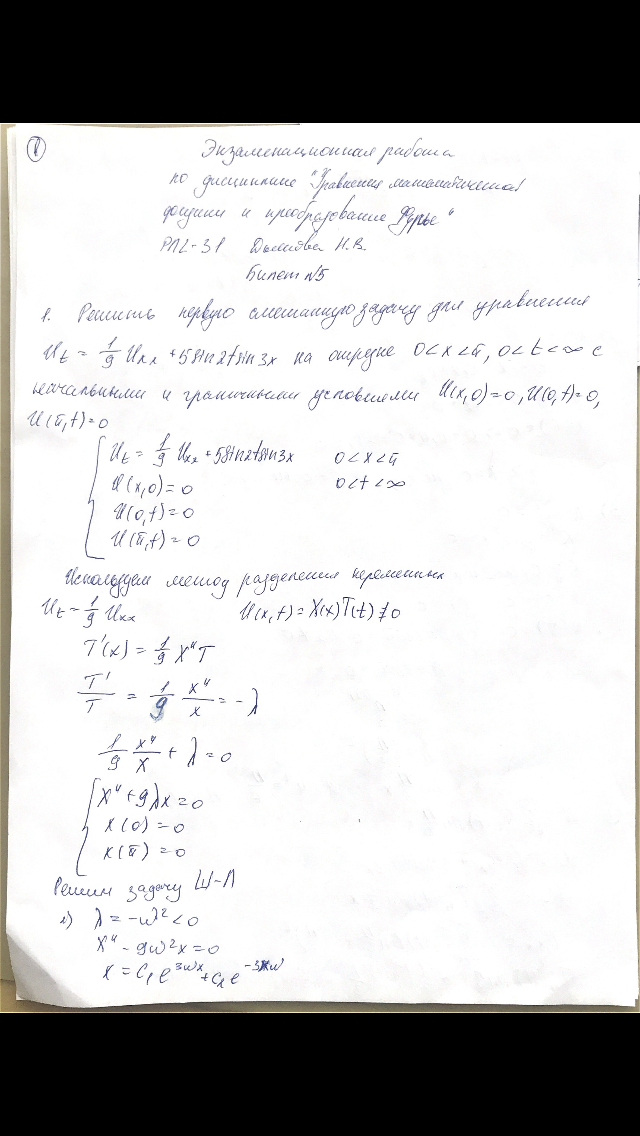 1
Экзаменационная работа
по дисциплине "Уравнения математической
физики и преобразование Фурье"
РПL-31 Н.В.
Билет №5
1. Решить первую смешанную задачу для уравнения
U_t = 1/9 U_xx + 5sin2tsin3x на отрезке 0<x<π, 0<t<∞ с
начальными и граничными условиями U(x,0)=0, U(0,t)=0,
U(π,t)=0
U_t = 1/9 U_xx + 5sin2tsin3x 0<x<π
U(x,0)=0 0<t<∞
U(0,t)=0
U(π,t)=0
Используем метод разделения переменных
U_t = 1/9 U_xx U(x,t) = X(x)T(t) ≠ 0
T'(x) = 1/9 X''T
T'/T = 1/9 X''/X = -λ
1/9 X''/X + λ = 0
X'' + 9λx = 0
x(0) = 0
x(π) = 0
Решим задачу Ш-Л
1) λ = -ω² < 0
X'' - 9ω²x = 0
x = C₁e^{3ωx} + C₂e^{-3xω}